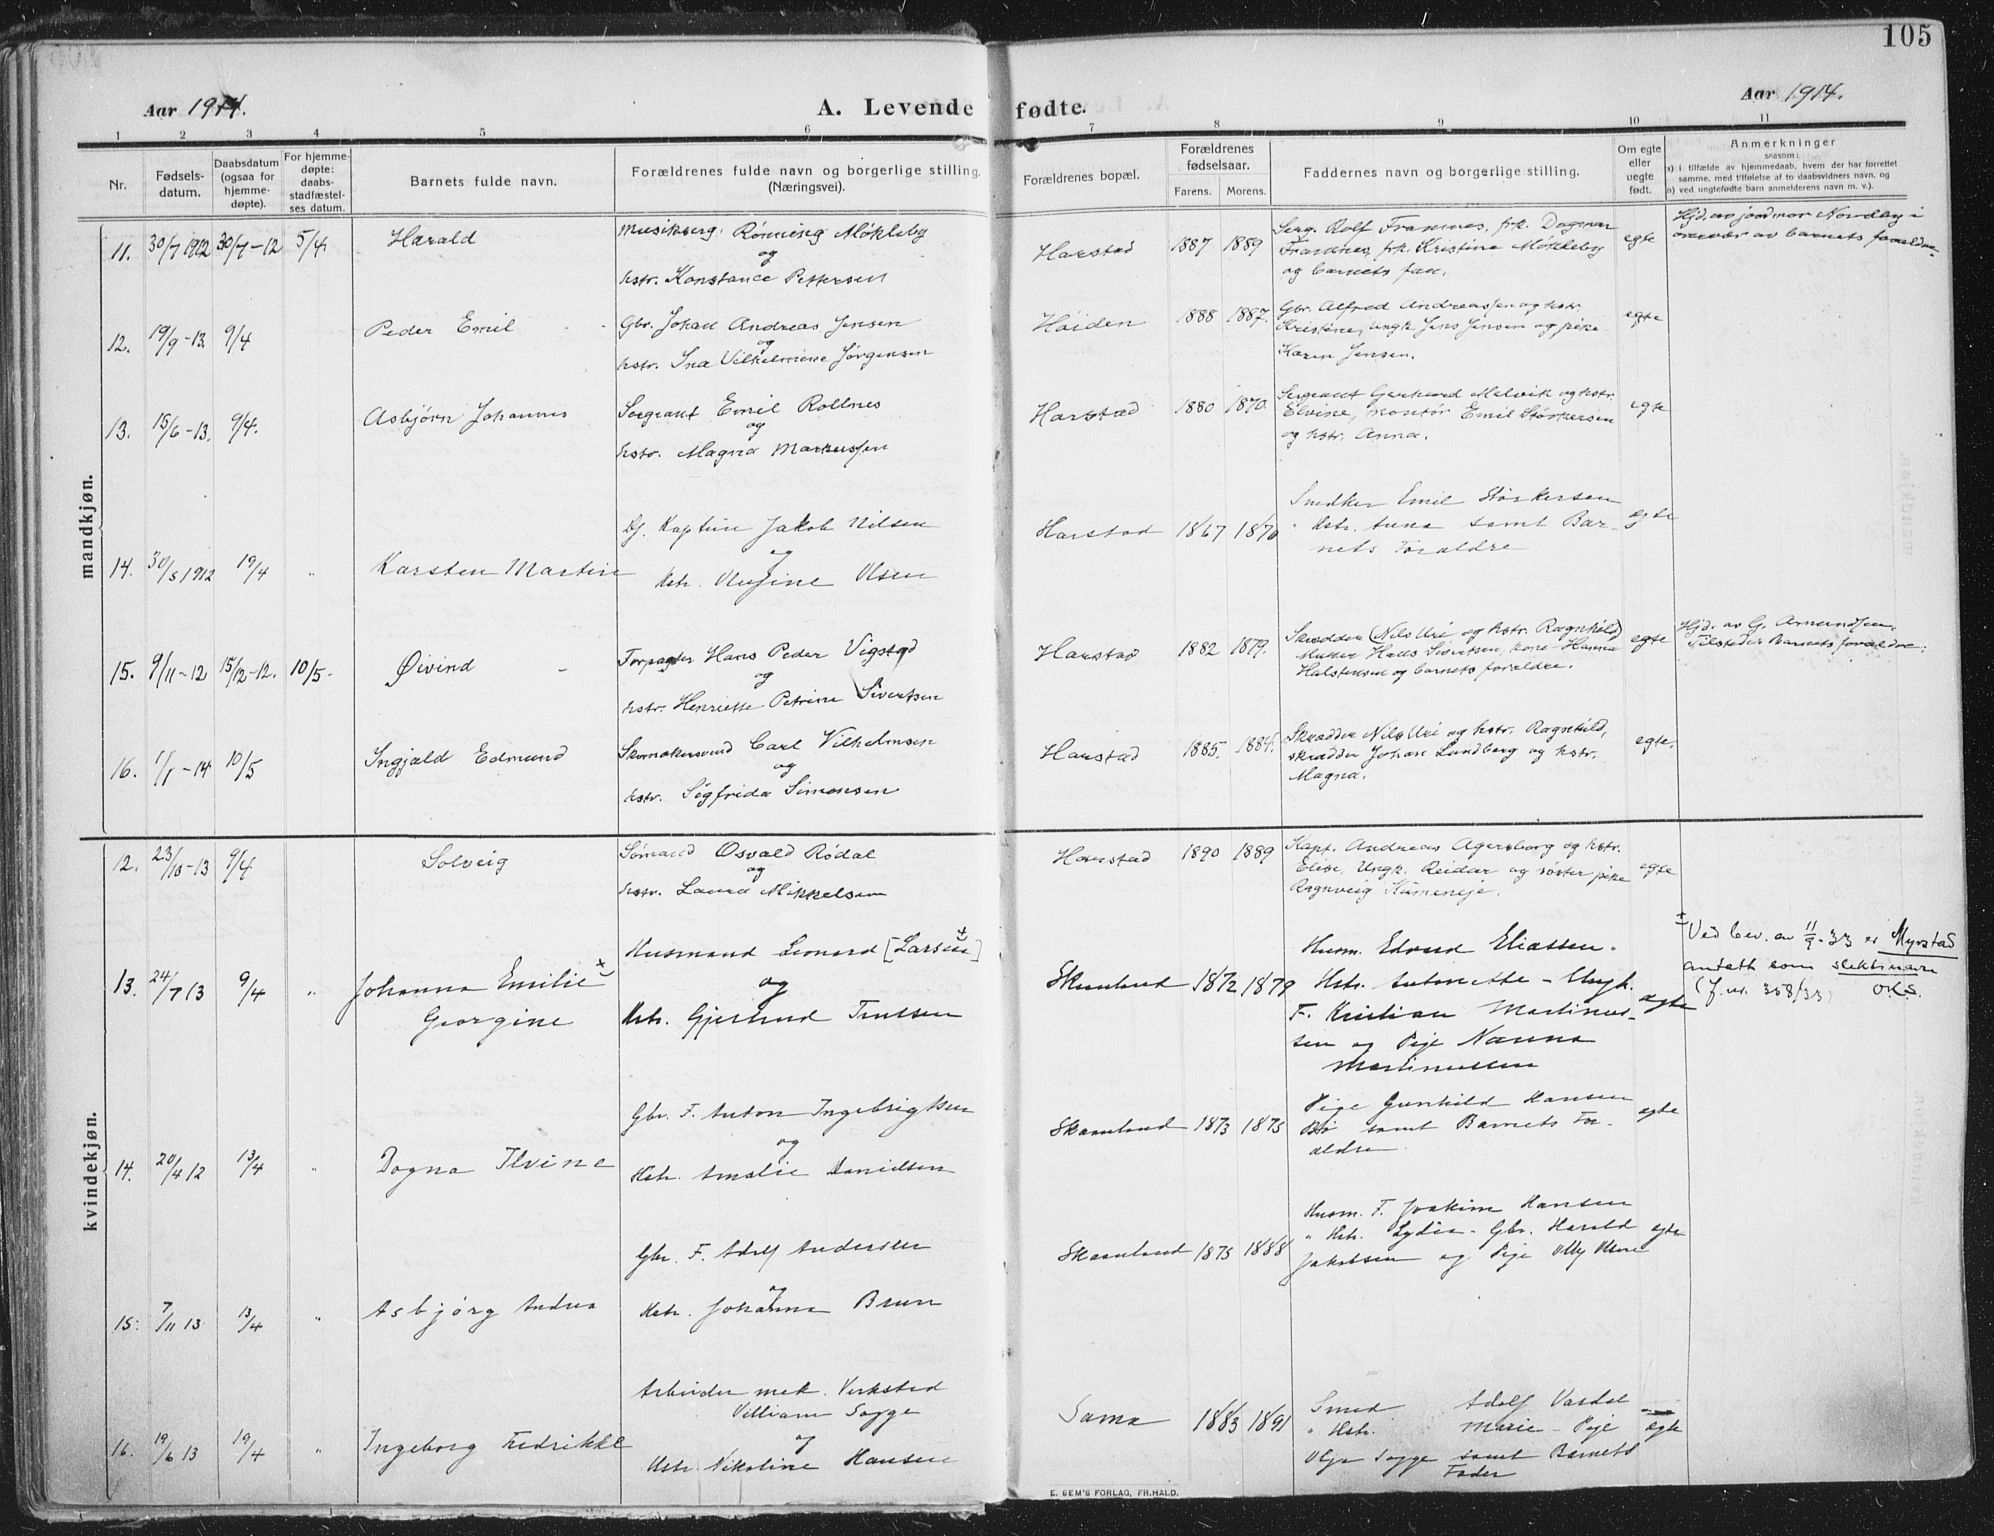 105
Aar 1914.
A. Levende fødte.
Aar 1914.
1 2 3 4 5 6 7 8 9 10 11
Nr.
Fødsels-
datum.
Daabsdatum
(ogsaa for
hjemme-
døpte).
For hjemme-
døpte:
daabs-
stadfæstel-
ses datum.
Barnets fulde navn.
Forældrenes fulde navn og borgerlige stilling.
(Næringsvei).
Forældrenes bopæl.
Forældrenes
fødselsaar.
Farens. Morens.
Faddernes navn og borgerlige stilling.
Om egte
eller
uegte
født.
Anmerkninger
saasom:
a) i tilfælde av hjemmedaab, hvem der har forrettet
samme, med tilføielse af to daabsvidners navn, og
b) ved uegtefødte barn anmelderens navn m. v.).
mandkjøn.
11. 30/7 1912 30/7-12 5/4 Harald
Musikserg. Rønning Møkleby
og
hstr. Konstance Pettersen
Harstad 1887 1889
Serg. Rolf Framnes, frk. Dagmar
Framnes, frk. Kristine Møkleby
og barnets far.
egte
Hjd. av jordmor Nordby i
overvær av barnets forældre.
12. 19/9-13 9/4 Peder Emil
Gbr. Johan Andreas Jensen
og
hstr. Ina Vilhelmine Jørgensen
Høiden 1888 1887.
Gbr. Alfred Andreassen og hstr.
Kristine, ungk. Jens Jensen og pike
Karen Jensen.
egte
13. 15/6-13. 9/4. Asbjørn Johannes
Sergeant Emil Rollnes
og
hstr. Magna Markussen
Harstad 1880 1870.
Sergeant Gerhard Melvik og hstr.
Elvine, montør Emil Størkersen
og hstr. Anna.
egte
14. 30/5 1912 19/4 " Karsten Martin
Dj. Kaptein Jakob Nilsen
og
Hstr. Olsen
Harstad 1867 1870
Snedker Emil Størkersen
" Hstr. Anna samt Bar-
nets Forældre
egte
15. 9/11-12 15/12-12. 10/5. Øivind -
Forpagter Hans Peder Vigstad
og
hstr. Henriette Petrine Sivertsen
Harstad 1882 1879.
Skrædder (Nils Uri og hstr. Ragnhild)
Maker Hans Sivertsen, kone Hanna
Halstensen og barnets forældre.
egte
Hjd. av G. Amundsen.
Tilstede: Barnets forældre.
16. 1/1-14 10/5 Ingjald Edmund
Skomakersvend Carl Vilhelmsen
og
hstr. Sigfrida Simonsen
Harstad 1885. 1884.
Skrædder Nils Uri og hstr. Ragnhild,
skrædder Johan Lundberg og hstr.
Magna.
egte.
kvindekjøn.
12. 23/10-13 9/4 Solveig
Sømand Osvald Rødal
og
hstr. Laura Mikkelsen
Harstad 1890 1889
Kapt. Andreas Agersborg og hstr.
Elise, Ungk. Reidar og søster pike
Ragnveig
egte
13. 24/7 13 9/4 " Johanna Emilie +
Georgine
Husmand Leonard [Larsen +]
og
Hstr. Gjertrud Trulsen
Skaanland 1872 1879
Husm. Edvard Eliassen.
Hstr. Antonette - Ungk.
F. Kristian Martinus-
sen og Pige Nanna
Martinussen
egte
+ Ved bev. av 11/9-33 er Myrstad
antatt som slektsnavn
(J. nr. 358/33) O.K.S.
14. 20/4 12 13/4 " Dagna Elvine
Gbr. F. Anton Ingebrigtsen
og
Hstr. Amalie Danielsen
Skaanland 1873 1875
Pige Gunhild Hansen
Bø samt Barnets For-
ældre
egte
15. 7/11 13 13/4 " Asbjørg Andrea
Gbr. F. Adolf Andersen
og
Hstr. Johanna Brun
Skaanland 1875 1888
Husm. F. Joakim Hansen
" Hstr. Lydia - Gbr. Harald
Jakobsen og Pige Olsen
egte
16. 19/6 13 19/4 " Ingeborg Fredrikke
Arbeider mek. Verksted
Villiam Sagge
og
Hstr. Nikoline Hansen
Sama 1883 1891
Smed Adolf Vasdal
" Hstr. Marie - Pige
Olga Sagge samt Barnets
Fader
egte
E. SEM'S FORLAG, FR.HALD.